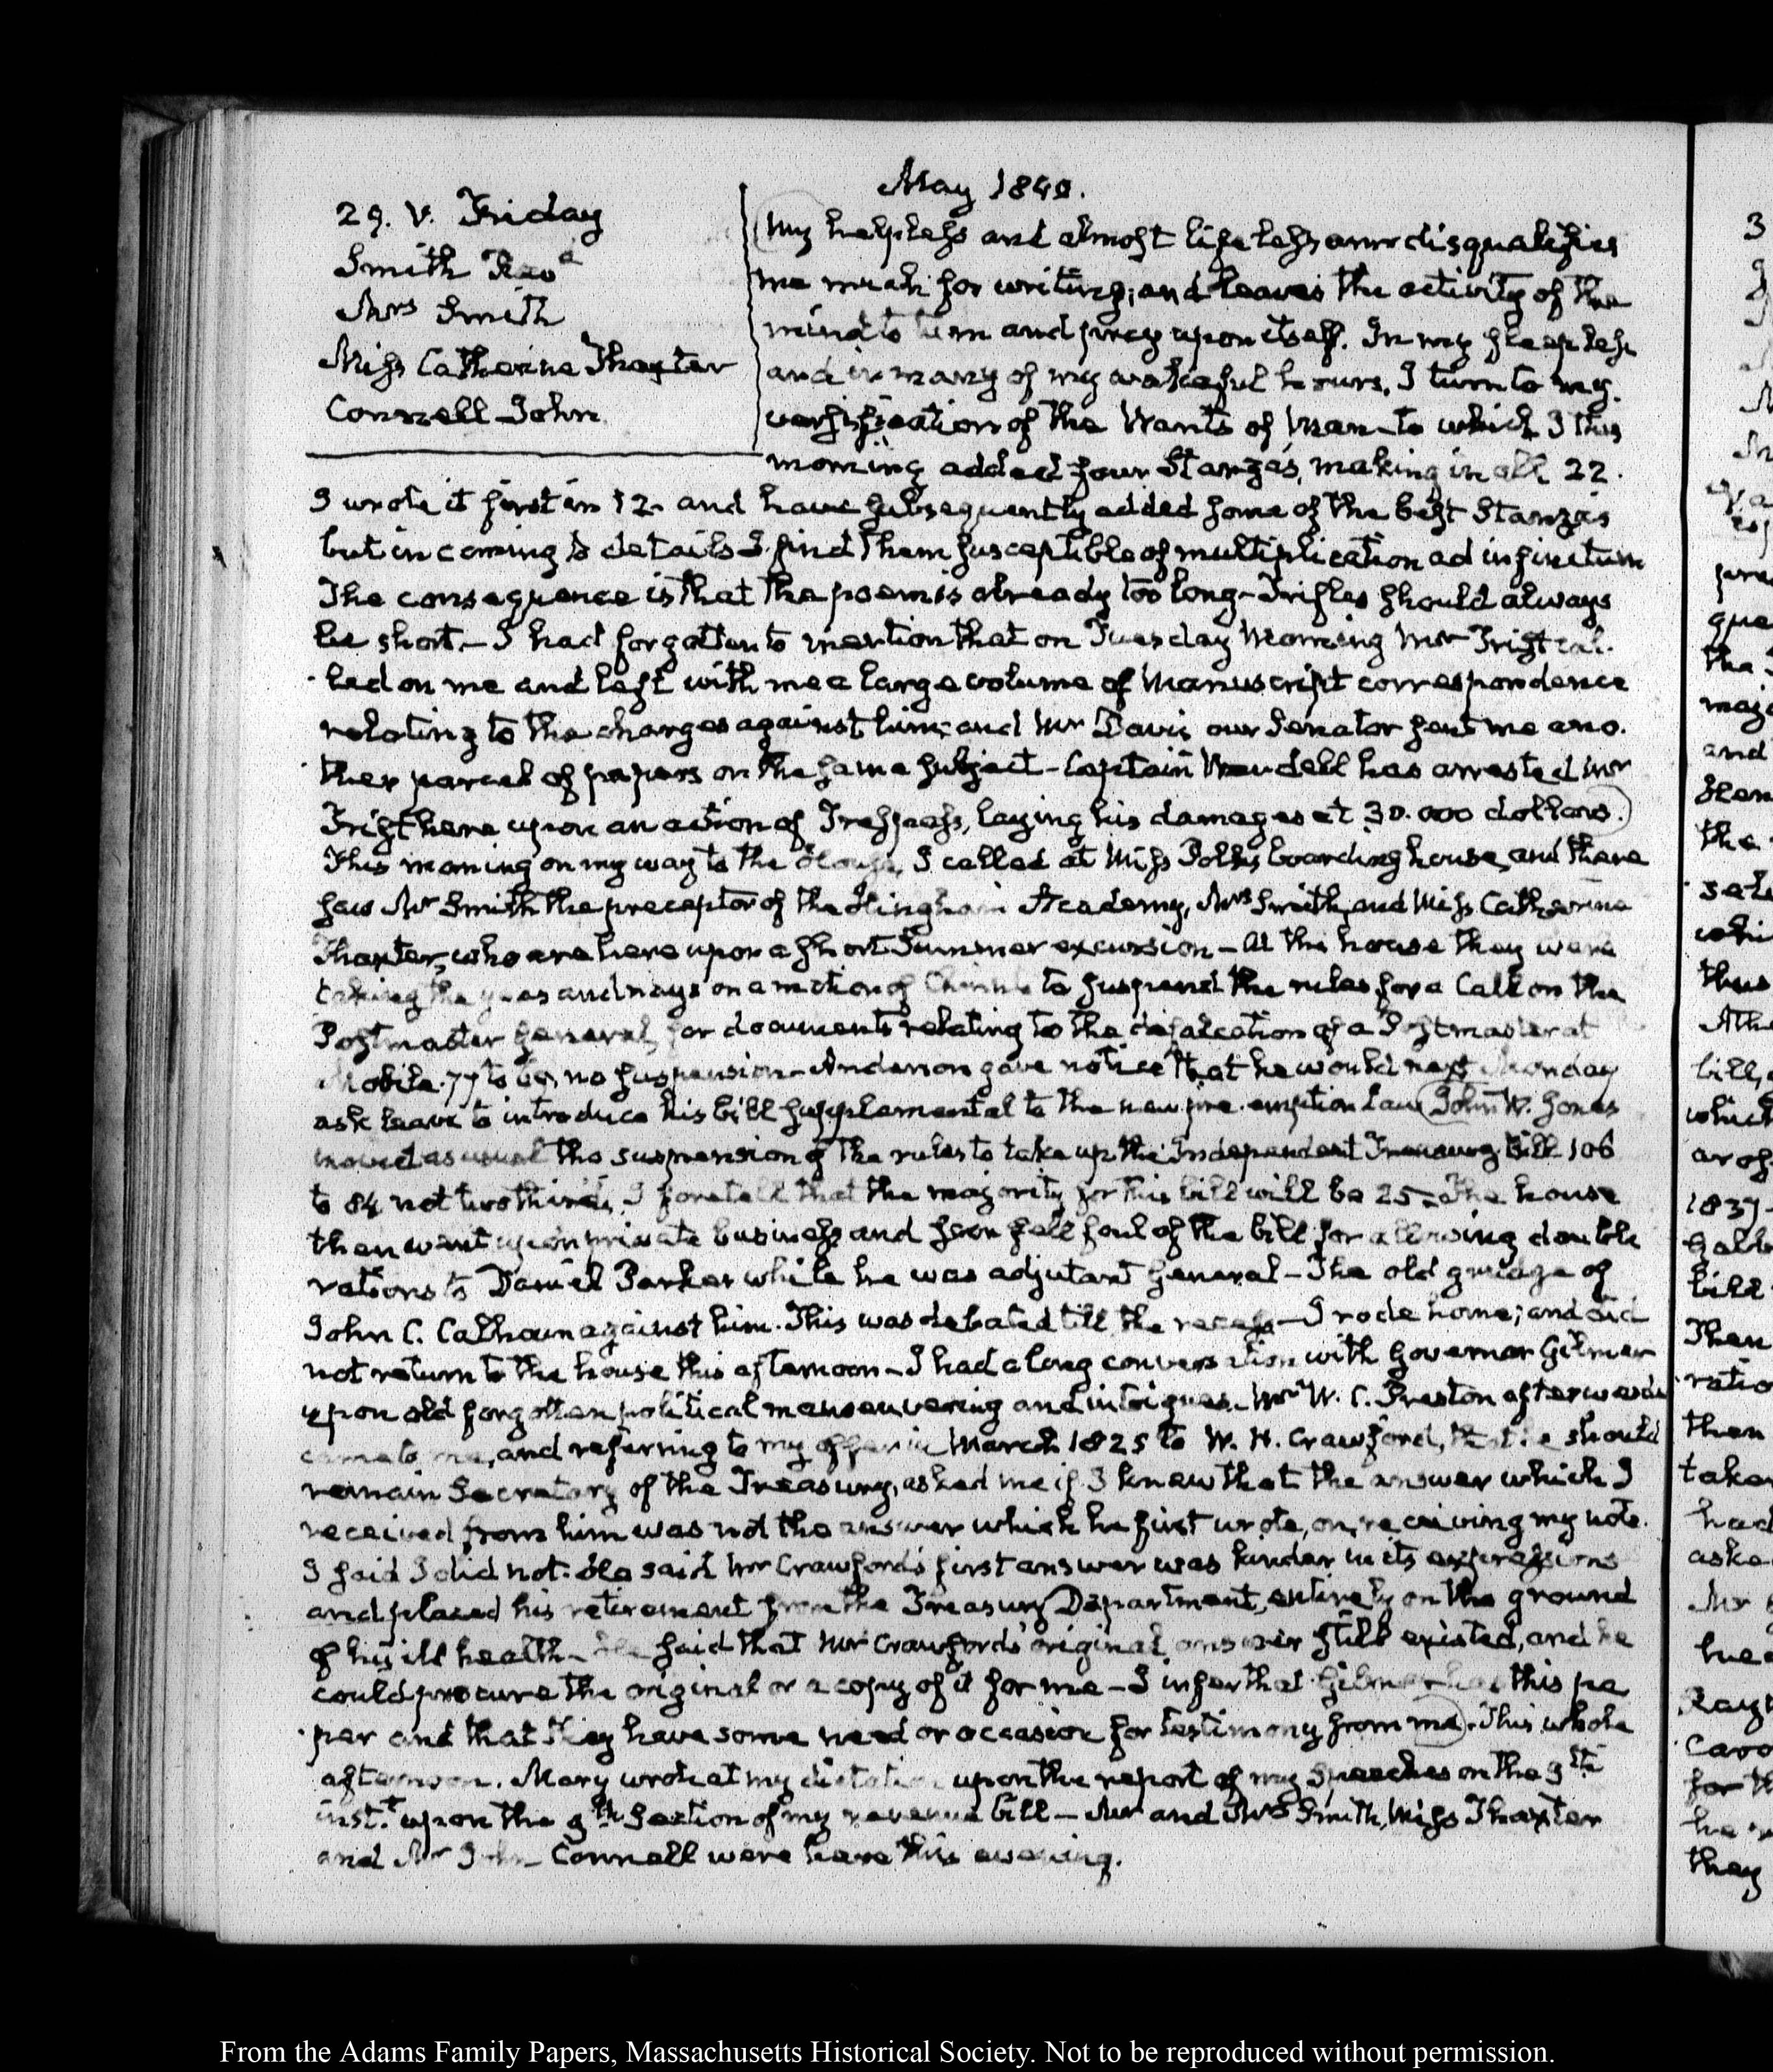 May 1840.
29. V. Friday
Smith
Mrs Smith
Miss Catherine Thaxter
Connell John
My helpless and almost lifeless arm disqualifies
me much for writing; and leaves the activity of the
mind to turn and prey upon itself. In my sleepless
and in many of my wakeful hours, I turn to my
versification of the Wants of Man_ to which I this
morning added four Stanzas, making in all 22.
I wrote it first in 12_ and have subsequently added some of the best Stanzas
but in coming to details I find them susceptible of multiplication ad infinitum
The consequence is that the poem is already too long_ Trifles should always
be short._ I had forgotten to mention that on Tuesday Morning Mr Trist cal-
led on me and left with me a large volume of Manuscript correspondence
relating to the charges against him; and Mr Davis our Senator sent me ano-
ther parcel of papers on the same subject_ Captain Wendell has arrested Mr
Trist here upon an action of Trespass, laying his damages at 30.000 dollars.
This morning on my way to the House, I called at Miss Polk's boarding house, and there
saw Mr Smith the preceptor of the Hingham Academy, Mrs Smith, and Miss Catherine
Thaxter, who are here upon a short Summer excursion_ At the house they were
taking the yeas and nays on a motion of to suspend the rules for a Call on the
Postmaster General, for documents relating to the defalcation of a Postmaster at
Mobile. 77 to no suspension_ Anderson gave notice that he would next Monday
ask leave to introduce his bill supplemental to the new pre-emption Law John W. Jones
moved as usual the suspension of the rules to take up the Independent Treasury Bill 106
to 84 not two thirds. I foretell that the majority for this bill will be 25_ The house
then went upon private business and soon fell foul of the bill for allowing double
rations to Daniel Parker while he was adjutant General_ The old grudge of
John C. Calhoun against him. This was debated till the recess_ I rode home; and did
not return to the house this afternoon_ I had a long conversation with Governor Gilmer
upon old forgotten political manoeuvering and intrigues. Mr W. C. Preston afterwards
came to me, and referring to my offer in March 1825 to W. H. Crawford, that he should
remain Secretary of the Treasury, asked me if I knew that the answer which I
received from him was not the answer which he first wrote, on receiving my note.
I said I did not. He said Mr Crawford's first answer was kinder in its expressions
and placed his retirement from the Treasury Department, entirely on the ground
of his ill health_ He said that Mr Crawford's original answer still existed, and he
could procure the original or a copy of it for me_ I infer that Gilmer has this pa-
per and that they have some need or occasion for testimony from me. This whole
afternoon. Mary wrote at my dictation upon the report of my Speeches on the
inst.t upon the 9th Section of my revenue bill_ Mr and Mrs Smith, Miss Thaxter
and Mr John Connell were here this evening.
From the Adams Family Papers, Massachusetts Historical Society. Not to be reproduced without permission.